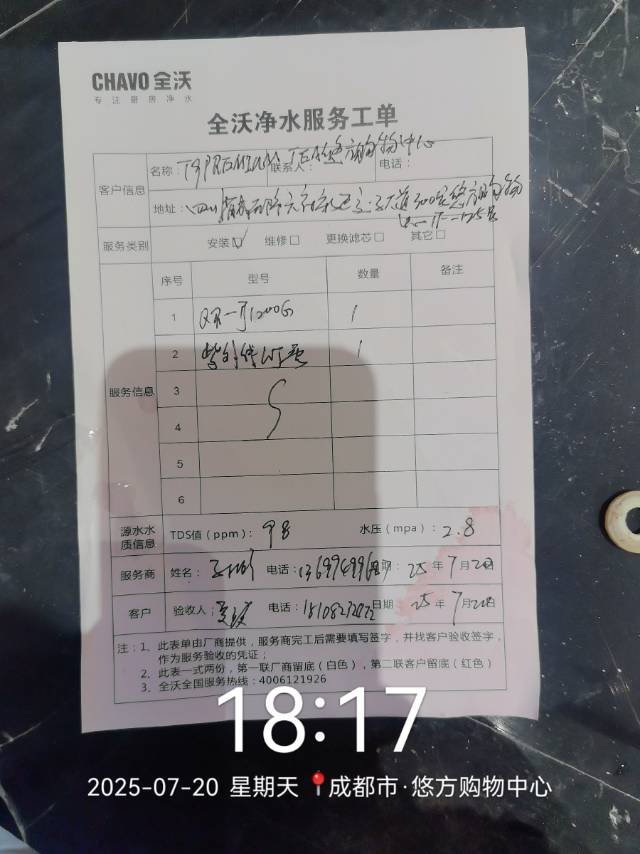 CHAVO 全沃
专注厨房净水
全沃净水服务工单
客户信息
名称： T9 PREMIUM TEA 悠方购物中心 联系人： 电话：
地址：四川省成都 300号悠方购物
服务类别 安装☑ 维修□ 更换滤芯□ 其它□
服务信息
序号 型号 数量 备注
1 双子1200G 1
2 紫外线 1
3
4
5
6
源水水质信息 TDS值（ppm）： 98 水压（mpa）： 2.8
服务商 姓名： 电话： 日期： 25 年 7 月 20
客户 验收人： 电话： 日期 25 年 7 月 20
注：1、此表单由厂商提供，服务商完工后需要填写签字，并找客户验收签字，
作为服务验收的凭证；
2、此表一式两份，第一联厂商留底（白色），第二联客户留底（红色）
3、全沃全国服务热线：4006121926
18:17
2025-07-20 星期天 成都市·悠方购物中心